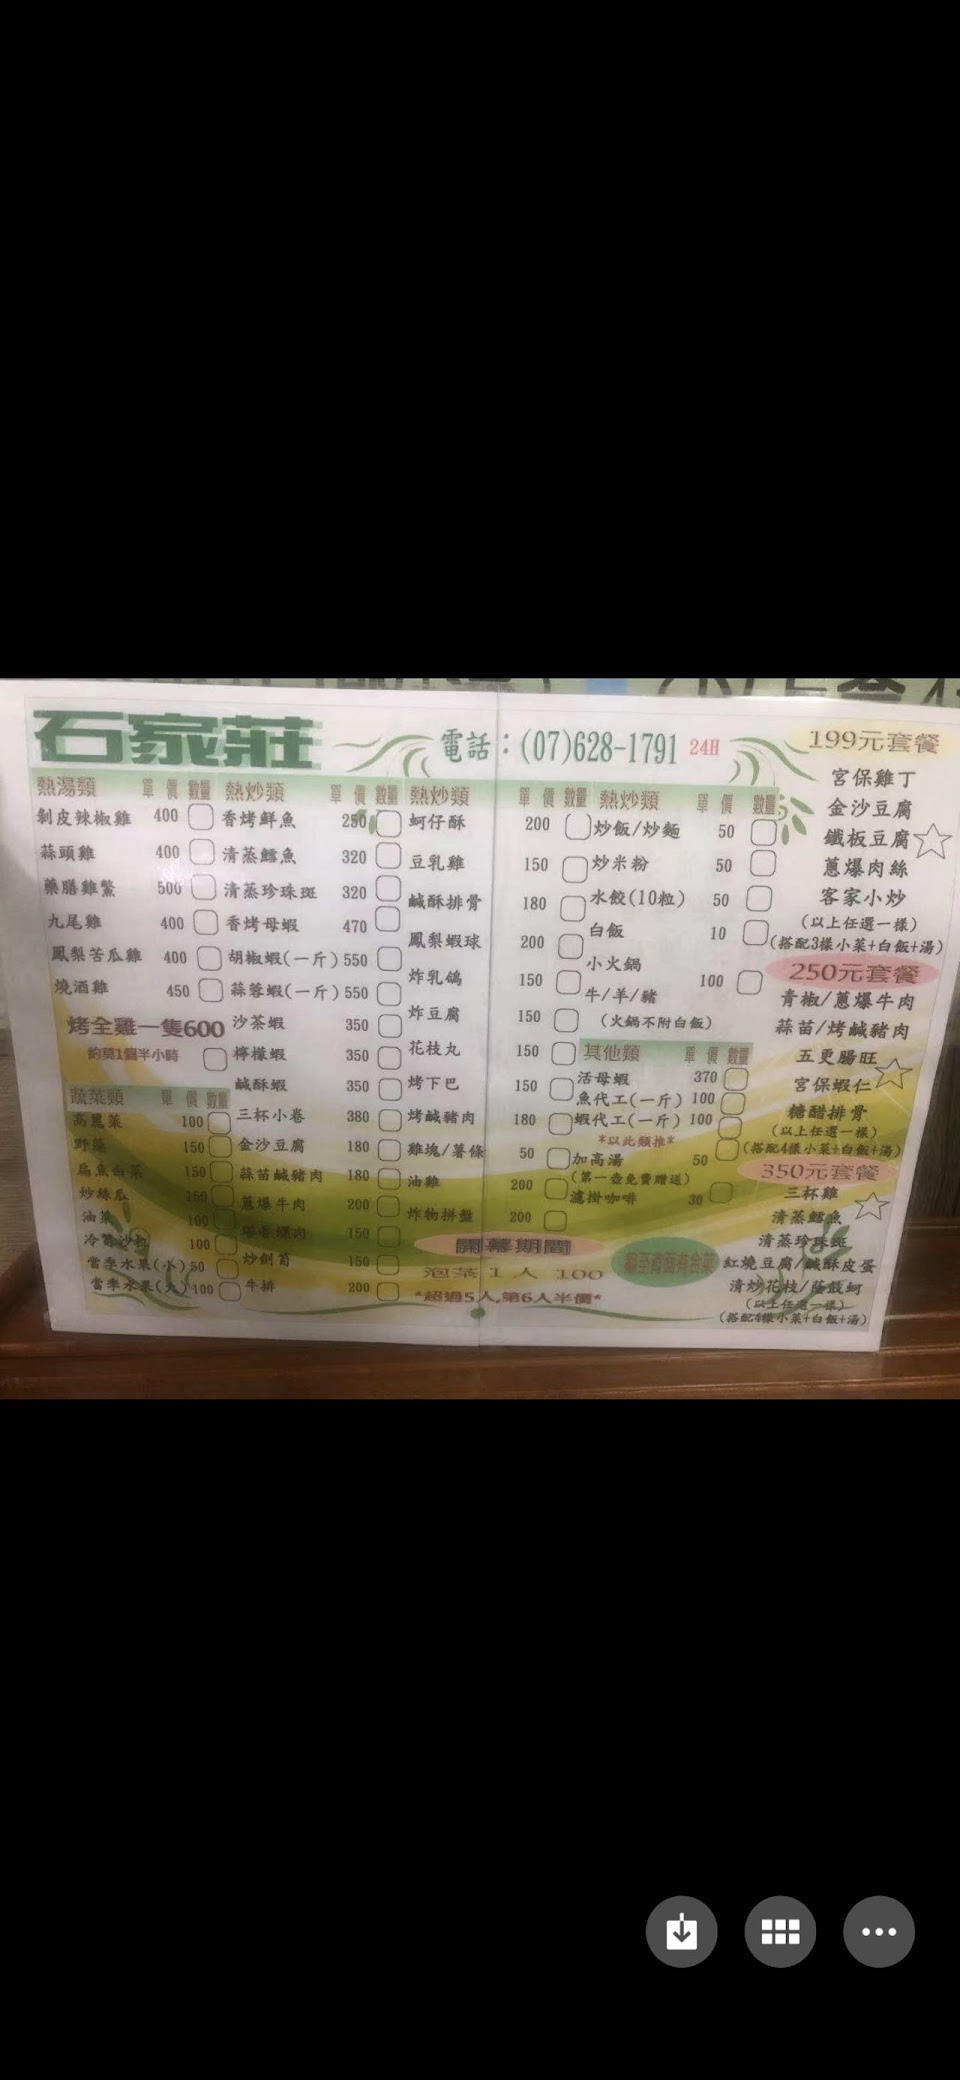 石家莊
電話：(07)628-1791 24H
熱湯類 單價 數量
剝皮辣椒雞 400
蒜頭雞 400
藥膳雞鱉 500
九尾雞 400
鳳梨苦瓜雞 400
燒酒雞 450
烤全雞一隻600
約莫1個半小時
蔬菜類 單價 數量
高麗菜 100
野蓮 150
扁魚白菜 150
炒絲瓜 150
油菜 100
冷筍沙拉 100
當季水果(小) 50
當季水果(大) 100
熱炒類 單價 數量
香烤鮮魚 250
清蒸鱈魚 320
清蒸珍珠斑 320
香烤母蝦 470
胡椒蝦(一斤) 550
蒜蓉蝦(一斤) 550
沙茶蝦 350
檸檬蝦 350
鹹酥蝦 350
三杯小卷 380
金沙豆腐 180
蒜苗鹹豬肉 180
蔥爆牛肉 200
塔香螺肉 150
炒劍筍 150
牛排 200
熱炒類 單價 數量
蚵仔酥 200
豆乳雞 150
鹹酥排骨 180
鳳梨蝦球 200
炸乳鴿 150
炸豆腐 150
花枝丸 150
烤下巴 150
烤鹹豬肉 180
雞塊/薯條 50
油雞 200
炸物拼盤 200
開幕期間
泡茶1人 100
*超過5人,第6人半價*
熱炒類 單價 數量
炒飯/炒麵 50
炒米粉 50
水餃(10粒) 50
白飯 10
小火鍋
牛/羊/豬 100
(火鍋不附白飯)
其他類 單價 數量
活母蝦 370
魚代工(一斤) 100
蝦代工(一斤) 100
*以此類推*
加高湯 50
(第一壺免費贈送)
濾掛咖啡 30
199元套餐
宮保雞丁
金沙豆腐
鐵板豆腐
蔥爆肉絲
客家小炒
(以上任選一樣)
(搭配3樣小菜+白飯+湯)
250元套餐
青椒/蔥爆牛肉
蒜苗/烤鹹豬肉
五更腸旺
宮保蝦仁
糖醋排骨
(以上任選一樣)
(搭配4樣小菜+白飯+湯)
350元套餐
三杯雞
清蒸鱈魚
清蒸珍珠斑
紅燒豆腐/鹹酥皮蛋
清炒花枝/蔭豉蚵
(以上任選一樣)
(搭配4樣小菜+白飯+湯)